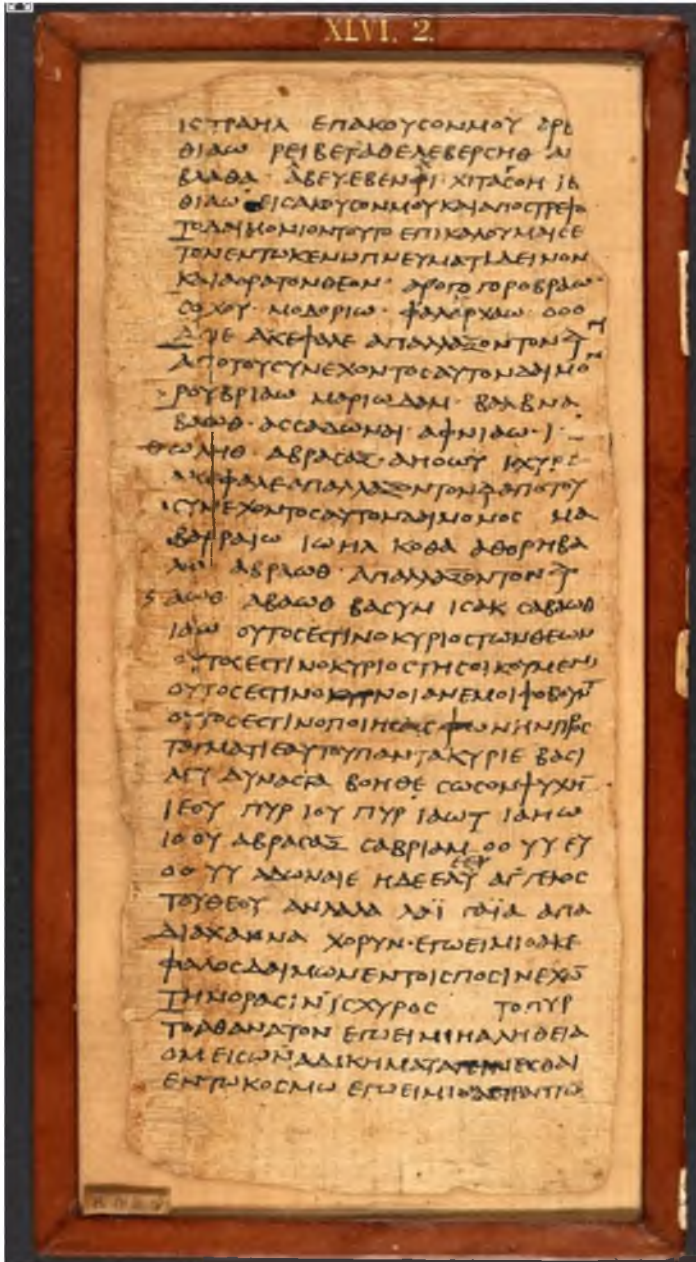 XLVI. 2.
ΙϹΤΡΑΗΛ ΕΠΑΚΟΥϹΟΝΜΟΥ
ΘΙΑΩ ΡΕΙΒΕΤΑΘΕΛΕΒΕΡϹΗΘ
ΒΛΑΘΑ· ΑΒΕΥ·ΕΒΕΝΦΙ· ΧΙΤΑϹΟΗ ΙΒ
ΘΙΑΩ ΕΙϹΑΚΟΥϹΟΝΜΟΥΚΑΙΑΠΟϹΤΡΕΨΟ
ΤΟΔΑΙΜΟΝΙΟΝΤΟΥΤΟ ΕΠΙΚΑΛΟΥΜΑΙϹΕ
ΤΟΝΕΝΤΩΚΕΝΩΠΝΕΥΜΑΤΙΔΕΙΝΟΝ
ΚΑΙΑΟΡΑΤΟΝΘΕΟΝ· ΑΡΟΓΟΓΟΡΟΒΡΑΩ·
ϹΟΧΟΥ· ΜΟΔΟΡΙΩ· ΦΑΛΑΡΧΑΩ· ΟΟΟ
ΑΠΕ ΑΚΕΦΑΛΕ ΑΠΑΛΛΑΞΟΝΤΟΝ
ΑΠΟΤΟΥϹΥΝΕΧΟΝΤΟϹΑΥΤΟΝΔΑΙΜΟΝ
ΡΟΥΒΡΙΑΩ ΜΑΡΙΩΔΑΜ· ΒΑΛΒΝΑ
ΒΑΩΘ· ΑϹϹΑΛΩΝΑΙ· ΑΦΝΙΑΩ· Ι·
ΘΩΛΗΘ· ΑΒΡΑϹΑΞ· ΑΗΟΩΥ
ΑΚΕΦΑΛΕΑΠΑΛΛΑΞΟΝΤΟΝΔΑΠΟΤΟΥ
ϹΥΝΕΧΟΝΤΟϹΑΥΤΟΝΔΑΙΜΟΝΟϹ ΜΑ
ΒΑΡΡΑΙΩ ΙΩΗΛ ΚΟΘΑ ΑΘΟΡΗΒΑ
ΑΒΡΑΩΘ· ΑΠΑΛΛΑΞΟΝΤΟΝ
ΑΩΘ· ΑΒΑΩΘ ΒΑϹΥΜ ΙϹΑΚ ϹΑΒΑΩΘ
ΙΑΩ ΟΥΤΟϹΕϹΤΙΝΟΚΥΡΙΟϹΤΩΝΘΕΩΝ
ΟΥΤΟϹΕϹΤΙΝΟΚΥΡΙΟϹΤΗϹΟΙΚΟΥΜΕΝΗϹ
ΟΥΤΟϹΕϹΤΙΝΟΝΟΙΑΝΕΜΟΙΦΟΒΟΥΝΤ
ΟΥΤΟϹΕϹΤΙΝΟΠΟΙΗϹΑϹΦΩΝΗΝΠΡΟϹ
ΤΑΓΜΑΤΙΕΑΥΤΟΥΠΑΝΤΑΚΥΡΙΕ ΒΑϹΙ
ΛΕΥ ΔΥΝΑϹΤΑ ΒΟΗΘΕ ϹΩϹΟΝΨΥΧΗ
ΙΕΟΥ ΠΥΡ ΙΟΥ ΠΥΡ ΙΑΩΤ ΙΑΗΩ
ΙΟΟΥ ΑΒΡΑϹΑΞ ϹΑΒΡΙΑΜ ΟΟ ΥΥ ΕΥ
ΟΟ ΥΥ ΑΔΩΝΑΙΕ ΗΔΕ ΕΔΥ ΑΓΓΕΛΟϹ
ΤΟΥΘΕΟΥ ΑΝΛΑΛΑ ΛΑΪ ΓΑΪΑ ΑΠΑ
ΔΙΑΧΑΝΝΑ ΧΟΡΥΝ·ΕΓΩΕΙΜΙΟΑΚΕ
ΦΑΛΟϹΔΑΙΜΩΝΕΝΤΟΙϹΠΟϹΙΝΕΧΩ
ΤΗΝΟΡΑϹΙΝ ΙϹΧΥΡΟϹ ΤΟΠΥΡ
ΤΟΑΘΑΝΑΤΟΝ ΕΓΩΕΙΜΙΗΑΛΗΘΕΙΑ
ΟΜΕΙϹΩΝΑΔΙΚΗΜΑΤΑΓΕΙΝΕϹΘΑΙ
ΕΝΤΩΚΟϹΜΩ ΕΓΩΕΙΜΙΟ